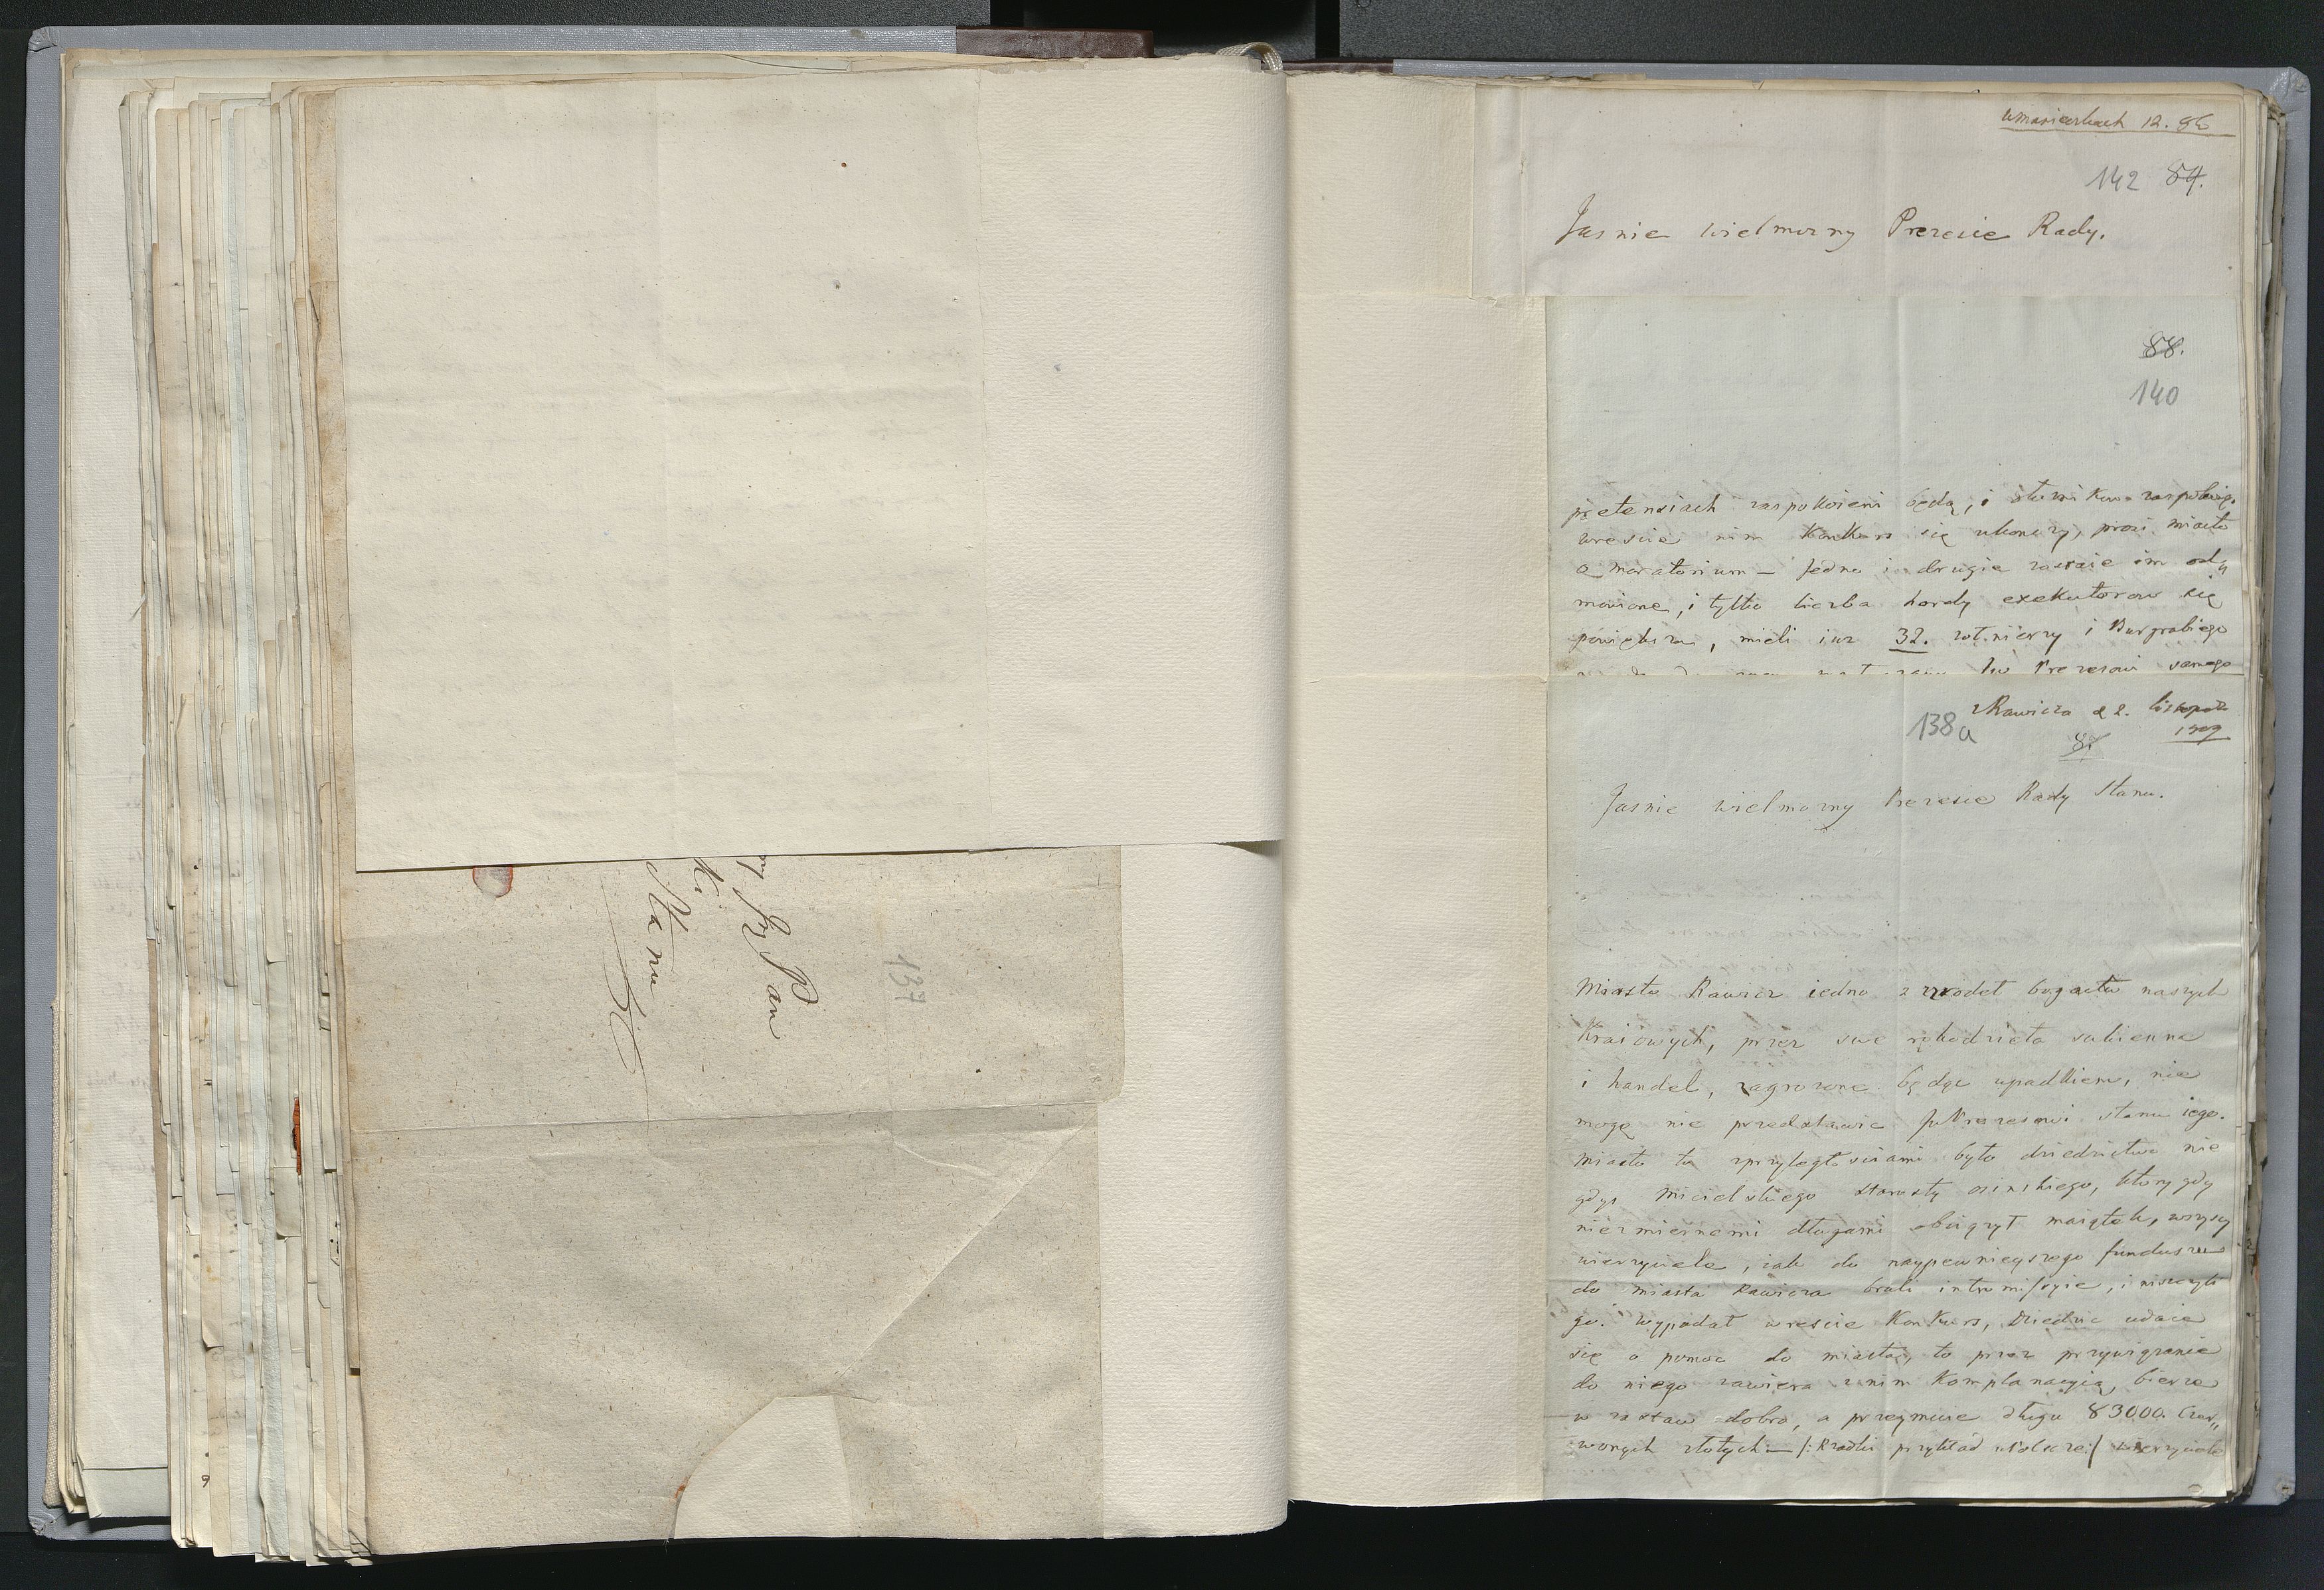 Pan
Stanu
137
12. 86
142 84.
Jasnie wielmozny Prezesie Rady.
88.
140
pretensiach zaspokoieni będą, i
wreście nim Konkurs się ukonczy, prosi miasto
o moratorium — Jedno i drugie zostaie im od„
mowione, i tylko liczba hordy exekutorow się
powiększa, mieli iuz 32. zołnierzy i Burgrabiego
Prezesowi samego
z Rawicza d 2. listopada
1809
138a
Jasnie wielmozny Prezesie Rady Stanu.
Miasto Rawicz iedno z zrodeł bogactw naszych
Kraiowych, przez swe rękodzieła sukienne
i handel, zagrozone będąc upadkiem, nie
mogę nie przedstawic JWPrezesowi stanu iego.
Miasto to zprzyległosciami było dziedzictwo nie
gdys Micielskiego starosty osinskiego, ktory gdy
niezmiernemi długami obciązył maiątek, wszyscy
wierzyciele, iak do naypewnieyszego funduszu
do miasta Rawicza brali intromissyie, i niszczyli
go. Wypadał wreście Konkurs, Dziedzic udaie
się o pomoc do miasta, to przez przywiązanie
do niego zawiera z nim Komplanacyią, bierze
w zastaw dobra, a przeymuie długu 83000. Czer„
wonych złotych — /: Rzadki przykład w Polszcze :/ wierzyciele